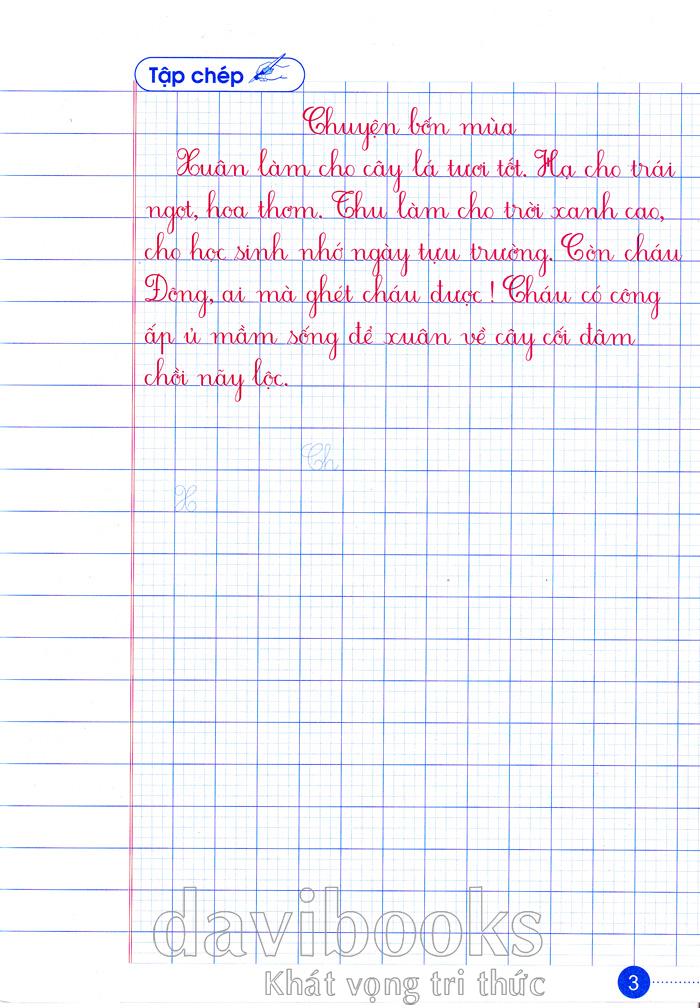 Tập chép
Chuyện bốn mùa
Xuân làm cho cây lá tươi tốt. Hạ cho trái
ngọt, hoa thơm. Thu làm cho trời xanh cao,
cho học sinh nhớ ngày tựu trường. Còn cháu
Đông, ai mà ghét cháu được! Cháu có công
ấp ủ mầm sống để xuân về cây cối đâm
chồi nảy lộc.
Ch
X
davibooks
Khát vọng tri thức
3